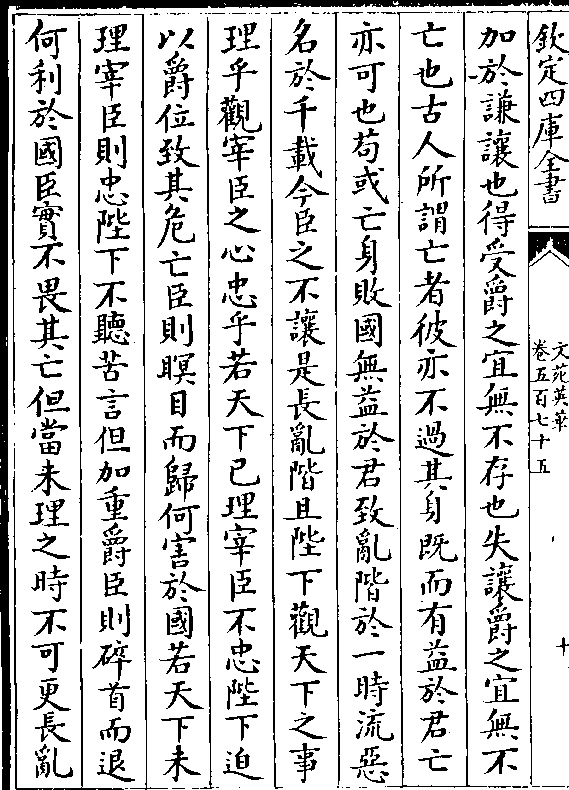 欽定四庫全書
文苑英華
卷五百七十五
十
加於謙讓也得受爵之宜無不存也失讓爵之宜無不
亡也古人所謂亡者彼亦不過其身既而有益於君亡
亦可也苟或亡身敗國無益於君致亂階於一時流惡
名於千載今臣之不讓是長亂階且陛下觀天下之事
理乎觀宰臣之心忠乎若天下已理宰臣不忠陛下迫
以爵位致其危亡臣則瞑目而歸何害於國若天下未
理宰臣則忠陛下不聽苦言但加重爵臣則碎首而退
何利於國臣實不畏其亡但當未理之時不可更長亂